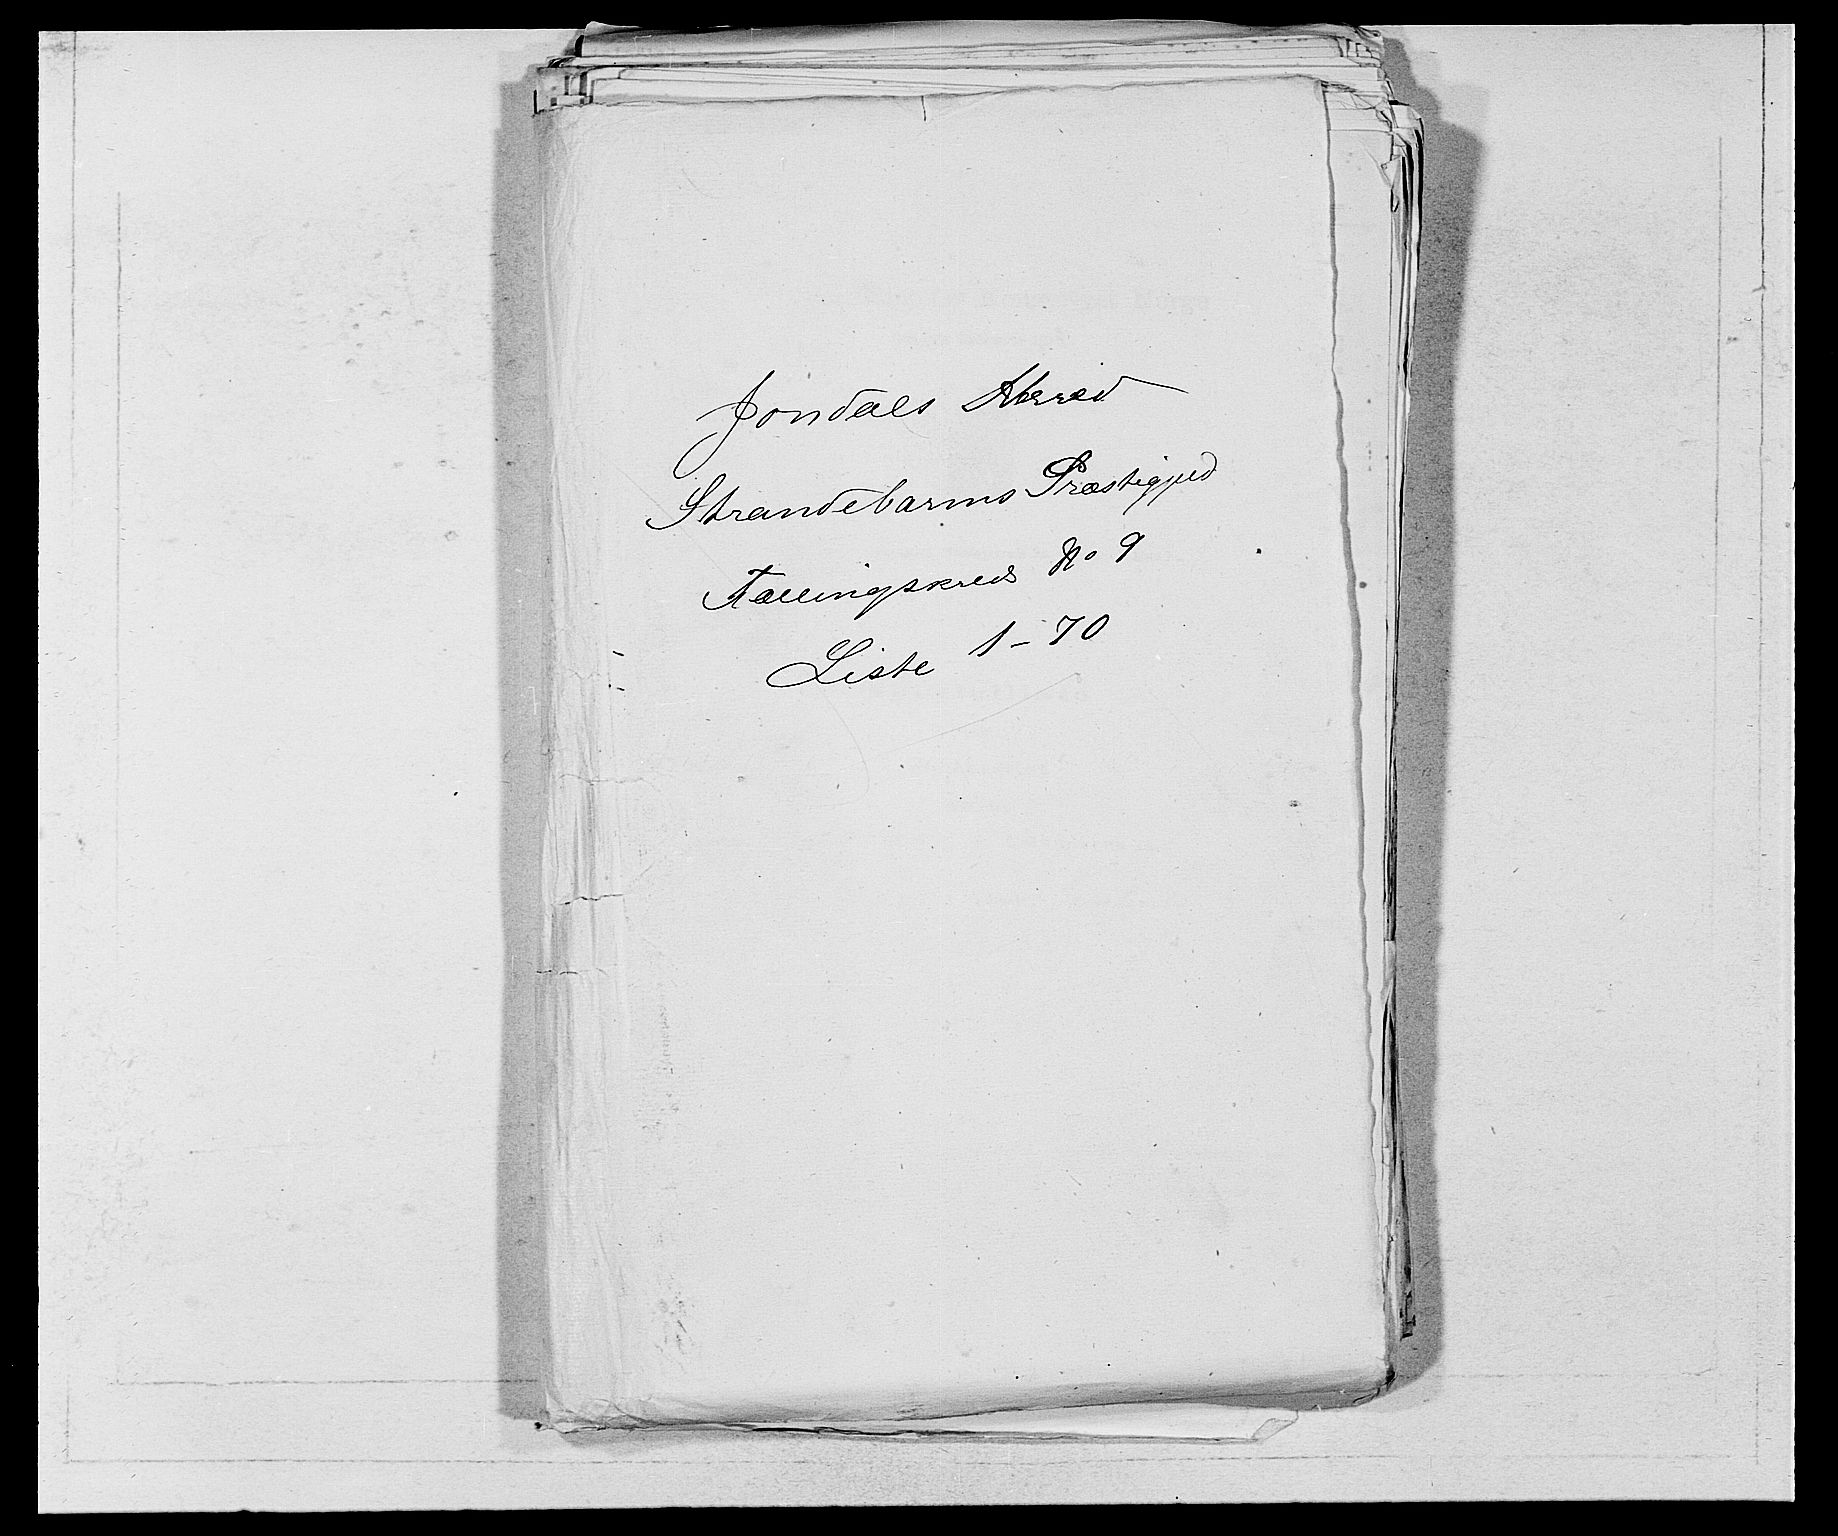 Jondals Herred
Strandebarms Præstegjeld
Tællingskreds No 9
Liste 1-70